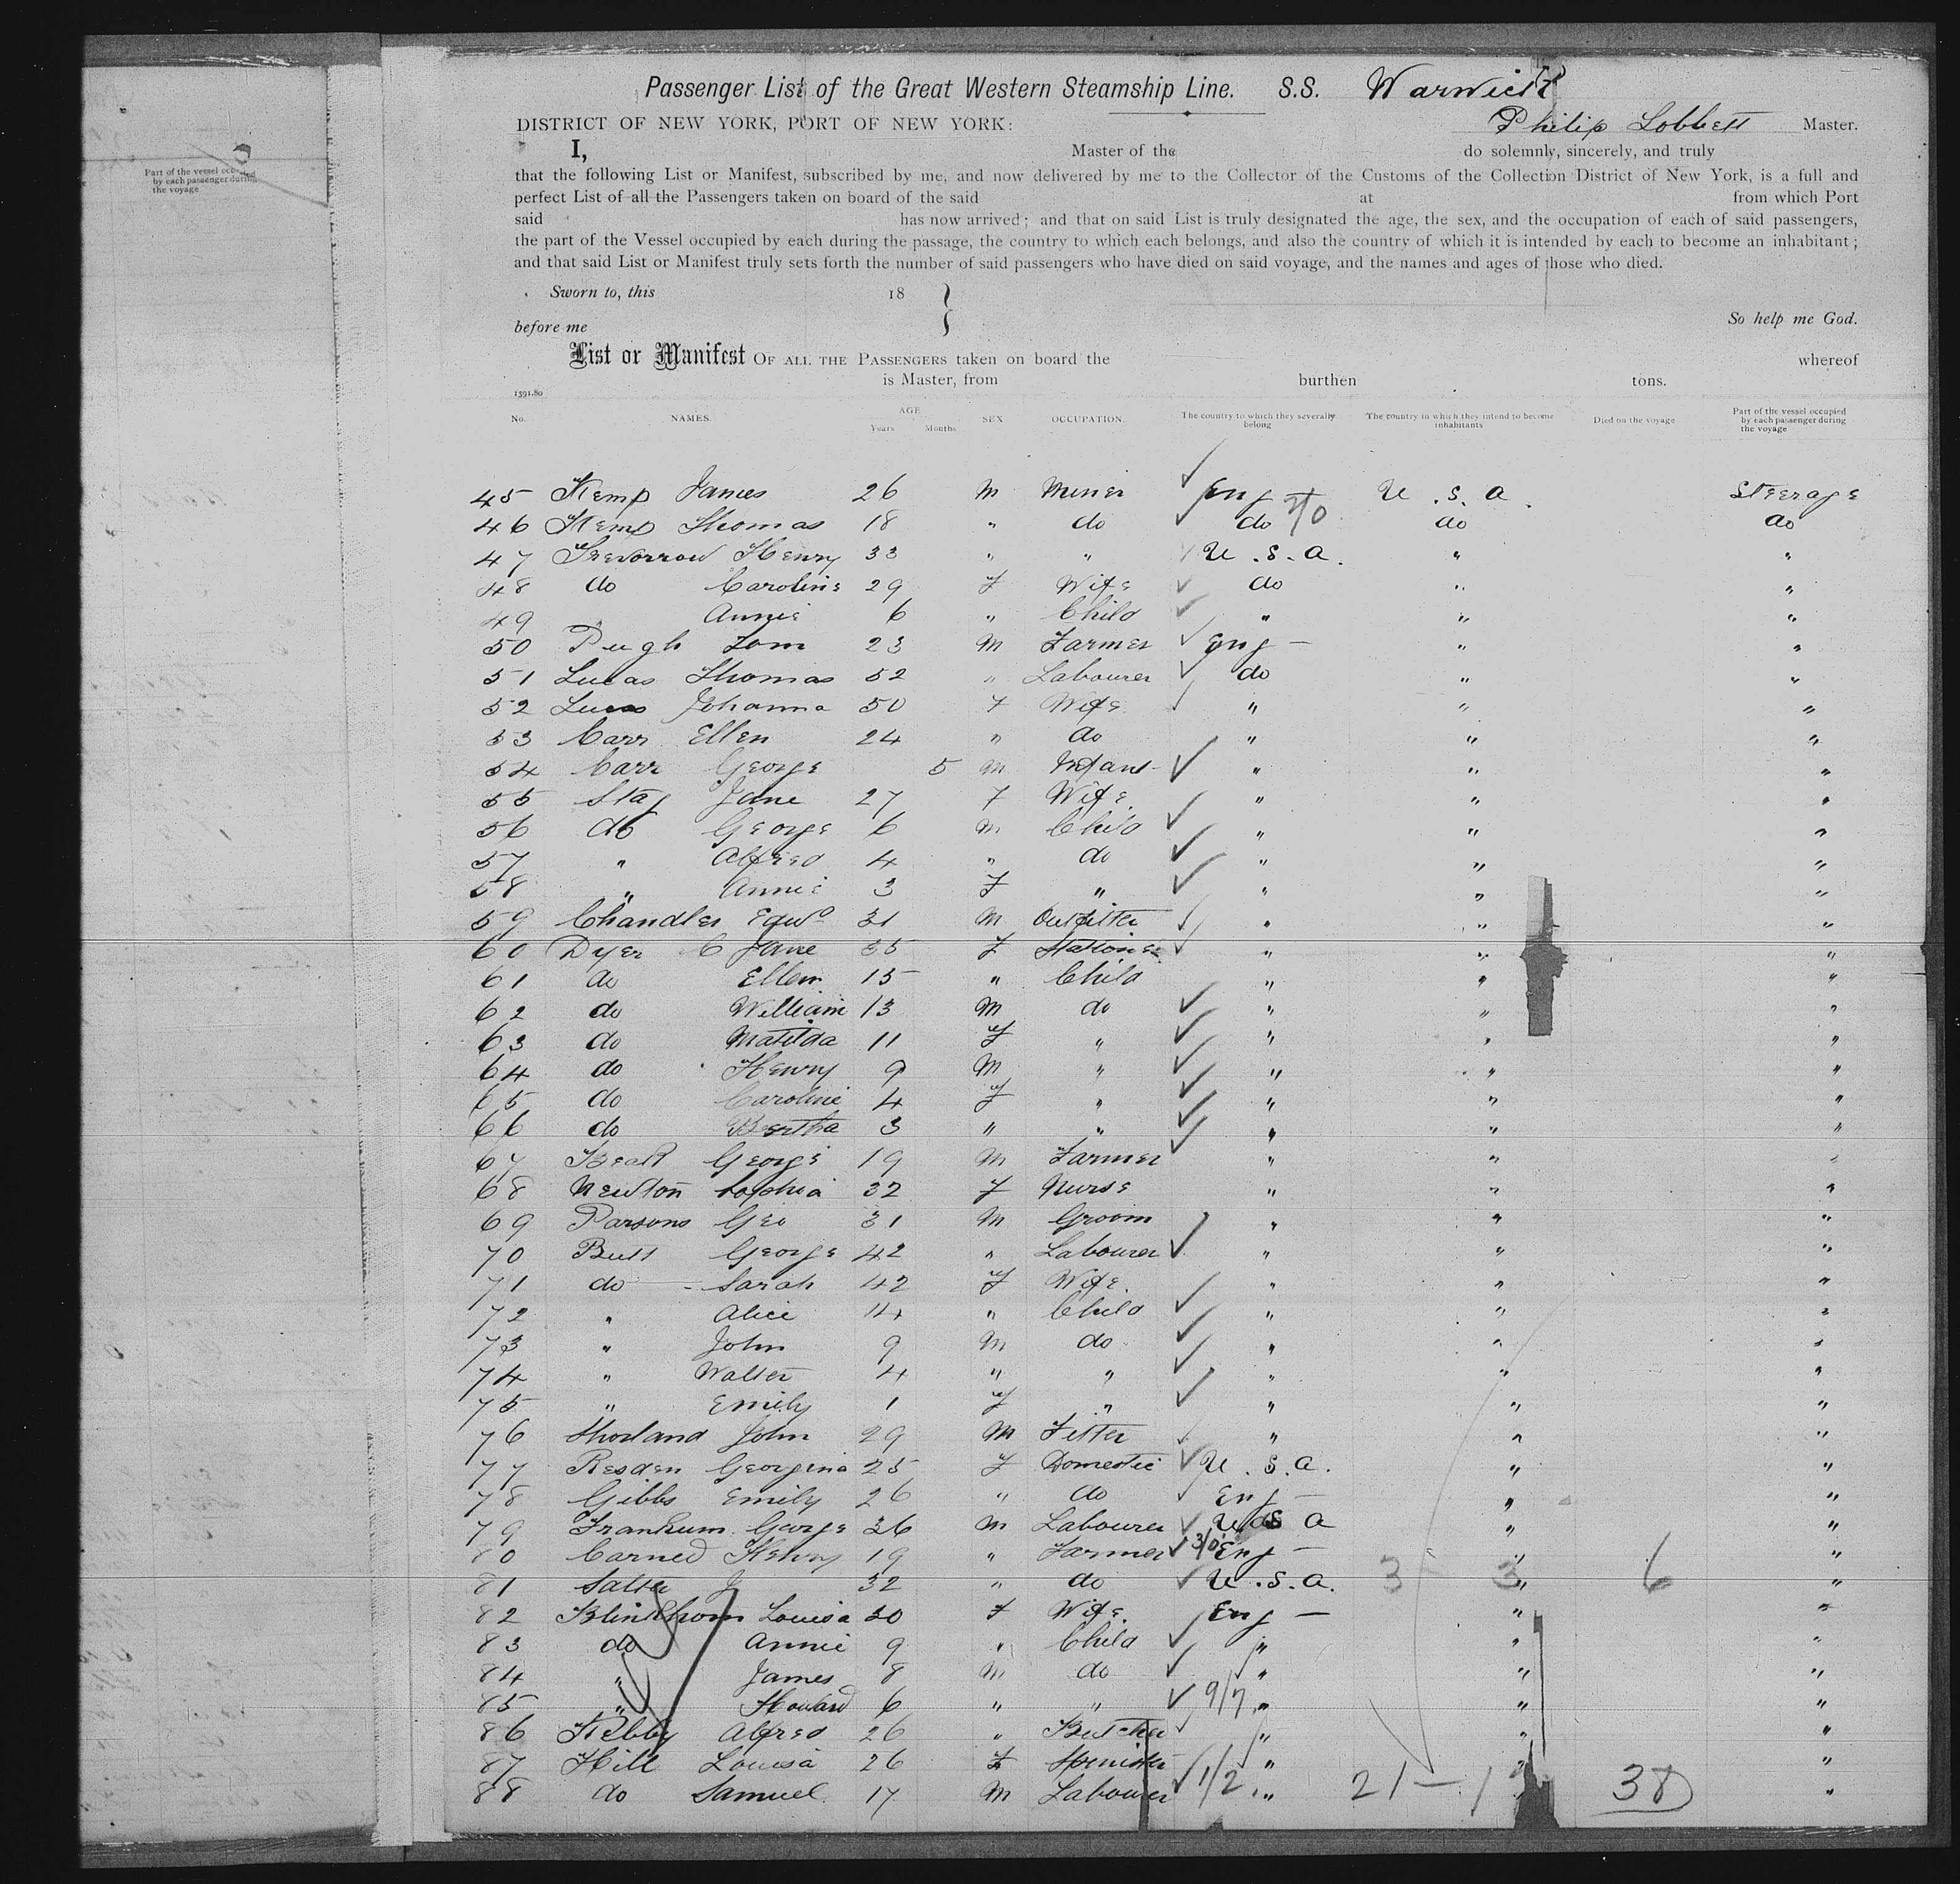 Part of the vessel occupied
by each passenger during
the voyage
Passenger List of the Great Western Steamship Line. S.S. Warwick
DISTRICT OF NEW YORK, PORT OF NEW YORK: Philip Lobbett Master.
I, Master of the do solemnly, sincerely, and truly
that the following List or Manifest, subscribed by me, and now delivered by me to the Collector of the Customs of the Collection District of New York, is a full and
perfect List of all the Passengers taken on board of the said at from which Port
said has now arrived; and that on said List is truly designated the age, the sex, and the occupation of each of said passengers,
the part of the Vessel occupied by each during the passage, the country to which each belongs, and also the country of which it is intended by each to become an inhabitant;
and that said List or Manifest truly sets forth the number of said passengers who have died on said voyage, and the names and ages of those who died.
Sworn to, this 18
before me So help me God.
List or Manifest OF ALL THE PASSENGERS taken on board the whereof
is Master, from burthen tons.
1391.80
No. NAMES. AGE Years Months SEX OCCUPATION. The country to which they severally belong The country in which they intend to become inhabitants Died on the voyage Part of the vessel occupied by each passenger during the voyage
45 Kemp James 26 M Miner Eng U.S.A. Steerage
46 Kemp Thomas 18 " do do do do
47 Trevorrow Henry 33 " " U.S.A. " "
48 do Caroline 29 F Wife do " "
49 " Annie 6 " Child " " "
50 Pugh Tom 23 M Farmer Eng - " "
51 Lucas Thomas 52 " Labourer do " "
52 Lucas Johanna 50 F Wife " " "
53 Carr Ellen 24 " do " " "
54 Carr George 5 M Infant " " "
55 Stay Jane 27 F Wife " " "
56 do George 6 M Child " " "
57 " Alfred 4 " do " " "
58 " Annie 3 F " " " "
59 Chandler Edwd 31 M Outfitter " " "
60 Dyer C Jane 35 F Stationer " " "
61 do Ellen 15 " Child " " "
62 do William 13 M do " " "
63 do Matilda 11 F " " " "
64 do Henry 9 M " " " "
65 do Caroline 4 F " " " "
66 do Bertha 3 " " " " "
67 George 19 M Farmer " " "
68 Newton Sophia 32 F Nurse " " "
69 Parsons Geo 31 M Groom " " "
70 Butt George 42 " Labourer " " "
71 do Sarah 42 F Wife " " "
72 " Alice 14 " Child " " "
73 " John 9 M do " " "
74 " Walter 4 " " " " "
75 " Emily 1 F " " " "
76 Shorland John 29 M Fitter " " "
77 Resden Georgina 25 F Domestic U.S.A. " "
78 Gibbs Emily 26 " do Eng - " "
79 Frankum George 36 M Labourer U S A " "
80 Carned Henry 19 " Farmer 3/0 Eng - " "
81 Salter J 32 " do U.S.A. 3 - 3 " 6 "
82 Blinkhorn Louisa 30 F Wife Eng - " "
83 do Annie 9 " Child " " "
84 " James 8 M do " " "
85 " Howard 6 " " 9/7 " " "
86 Kebby Alfred 26 " Butcher " " "
87 Hill Louisa 26 F Spinster " " "
88 do Samuel 17 M Labourer 1/2 " 21 - 1 " 38 "